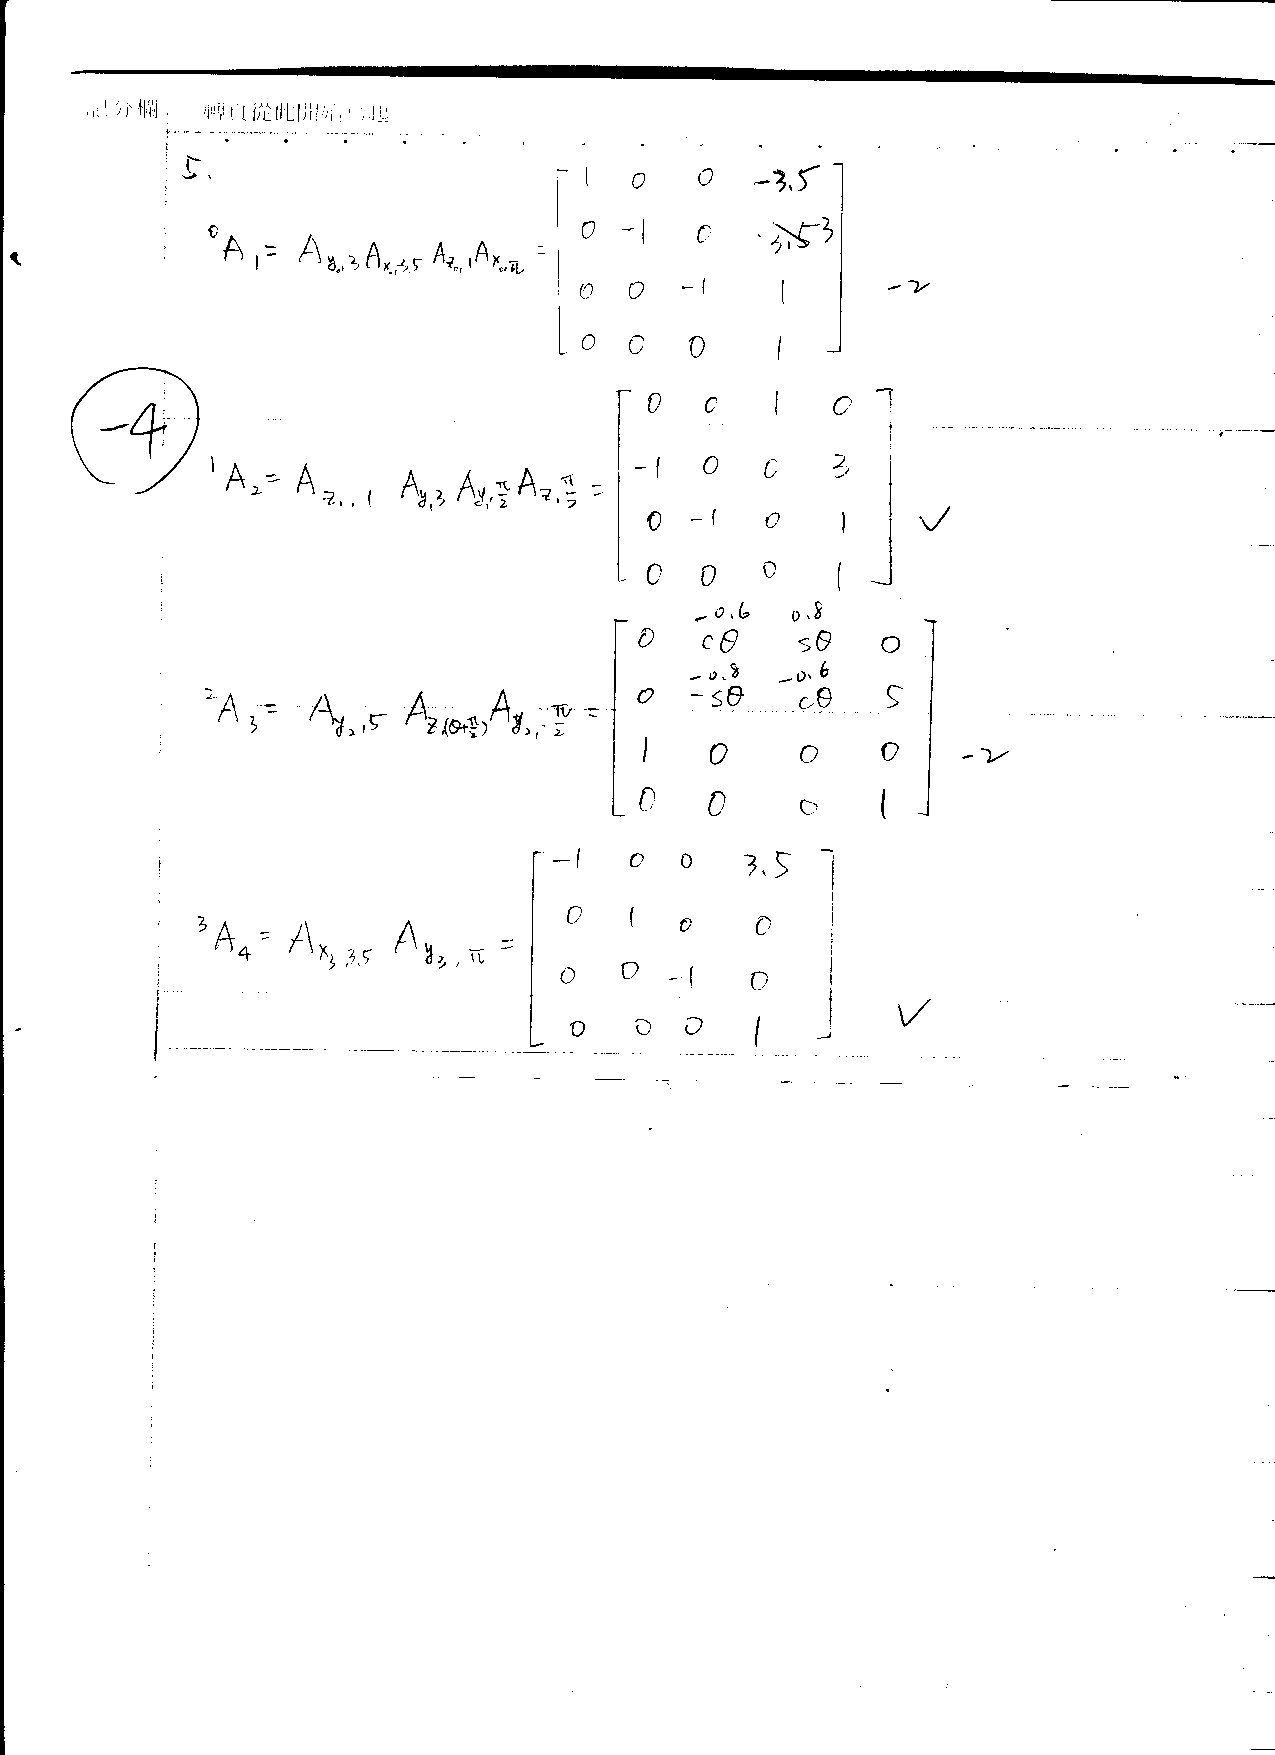 5.
⁰A₁ = A_{y₀,3} A_{x₀,-3.5} A_{z₀,1} A_{x₀,π} = [1 0 0 -3.5
0 -1 0 3
0 0 -1 1
0 0 0 1] -2
-4
¹A₂ = A_{z₁,1} A_{y,3} A_{y,π/2} A_{z,π/2} = [0 0 1 0
-1 0 0 3
0 -1 0 1
0 0 0 1] ✓
-0.6 0.8
²A₃ = A_{y₂,5} A_{z,(θ+π/2)} A_{y₂,-π/2} = [0 cθ sθ 0
-0.8 -0.6
0 -sθ cθ 5
1 0 0 0
0 0 0 1] -2
³A₄ = A_{x₃,3.5} A_{y₃,π} = [-1 0 0 3.5
0 1 0 0
0 0 -1 0
0 0 0 1] ✓